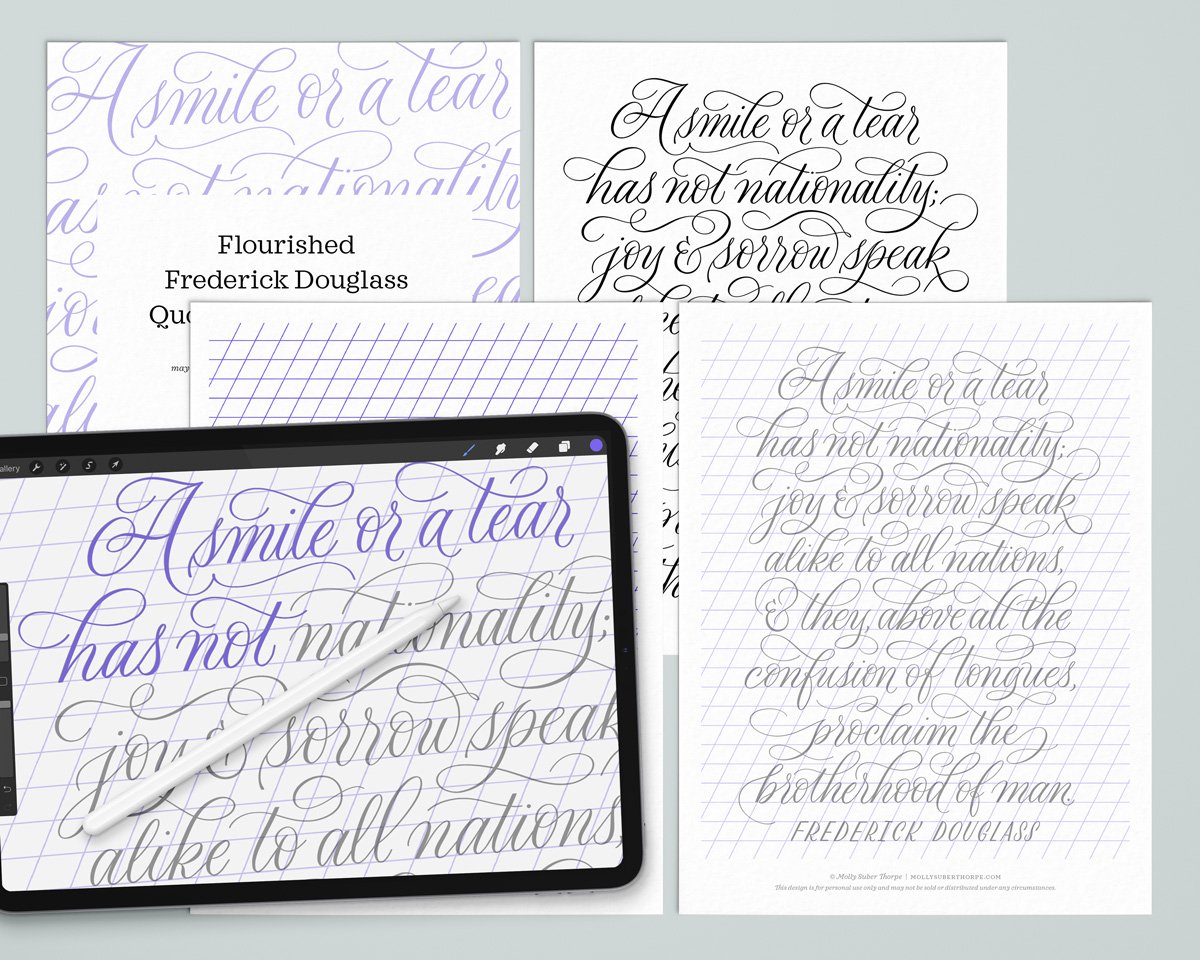 A smile or a tear
has not nationality;
Flourished
Frederick Douglass
may
A smile or a tear
has not nationality;
joy & sorrow speak
allery
A smile or a tear
has not nationality;
joy & sorrow speak
alike to all nations,
A smile or a tear
has not nationality;
joy & sorrow speak
alike to all nations,
& they, above all the
confusion of tongues,
proclaim the
brotherhood of man.
FREDERICK DOUGLASS
© Molly Suber Thorpe | MOLLYSUBERTHORPE.COM
This design is for personal use only and may not be sold or distributed under any circumstances.